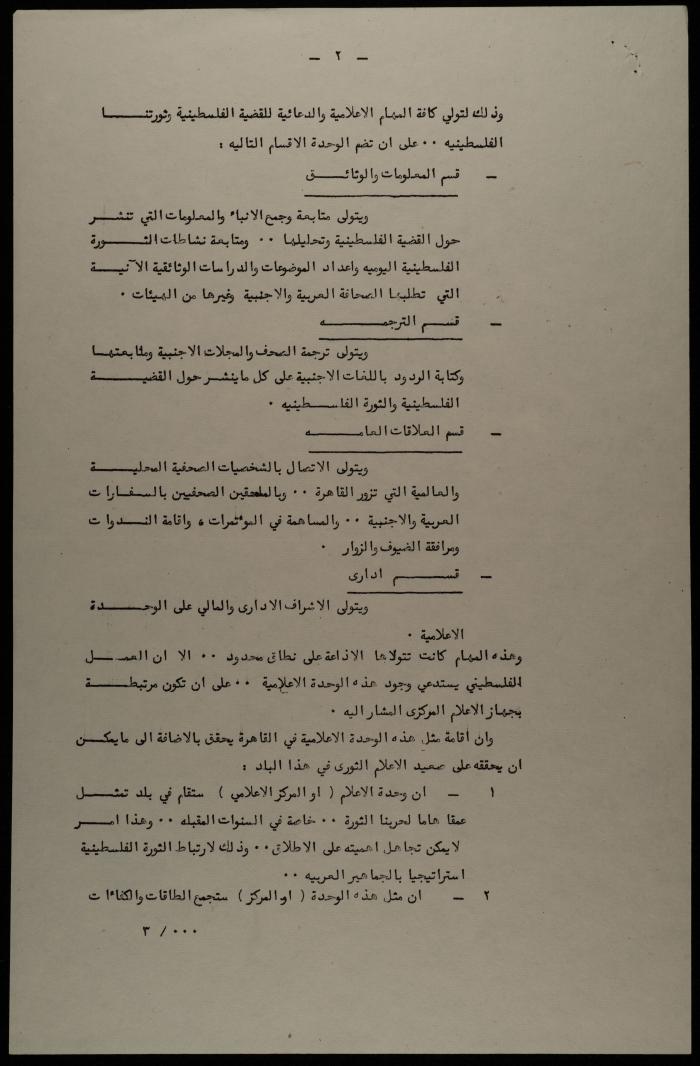 - ٢ -
وذلك لتولي كافة المهام الاعلامية والدعائية للقضية الفلسطينية وثورتنا
الفلسطينيه ٠٠ على ان تضم الوحدة الاقسام التاليه :
- قسم المعلومات والوثائق
ويتولى متابعة وجمع الانباء والمعلومات التي تنشر
حول القضية الفلسطينية وتحليلها ٠٠ ومتابعة نشاطات الثورة
الفلسطينية اليوميه واعداد الموضوعات والدراسات الوثائقية الآنية
التي تطلبها الصحافة العربية والاجنبية وغيرها من الهيئات ٠
- قسم الترجمه
ويتولى ترجمة الصحف والمجلات الاجنبية ومتابعتها
وكتابة الردود باللغات الاجنبية على كل ماينشر حول القضية
الفلسطينية والثورة الفلسطينيه ٠
- قسم العلاقات العامه
ويتولى الاتصال بالشخصيات الصحفية المحلية
والعالمية التي تزور القاهرة ٠٠ وبالملحقين الصحفيين بالسفارات
العربية والاجنبية ٠٠ والمساهمة في المؤتمرات ، واقامة الندوات
ومرافقة الضيوف والزوار ٠
- قسم ادارى
ويتولى الاشراف الادارى والمالي على الوحدة
الاعلامية ٠
وهذه المهام كانت تتولاها الاذاعة على نطاق محدود ٠٠ الا ان العمل
الفلسطيني يستدعي وجود هذه الوحدة الاعلامية ٠٠ على ان تكون مرتبطة
بجهاز الاعلام المركزى المشار اليه ٠
وان أقامة مثل هذه الوحدة الاعلامية في القاهرة يحقق بالاضافة الى مايمكن
ان يحققه على صعيد الاعلام الثورى في هذا البلد :
١ - ان وحدة الاعلام ( او المركز الاعلامي ) ستقام في بلد تمثل
عمقا هاما لحربنا الثورة ٠٠ خاصة في السنوات المقبله ٠٠ وهذا امر
لايمكن تجاهل اهميته على الاطلاق ٠٠ وذلك لارتباط الثورة الفلسطينية
استراتيجيا بالجماهير العربيه ٠٠
٢ - ان مثل هذه الوحدة ( او المركز ) ستجمع الطاقات والكفاءات
٠٠٠ / ٣